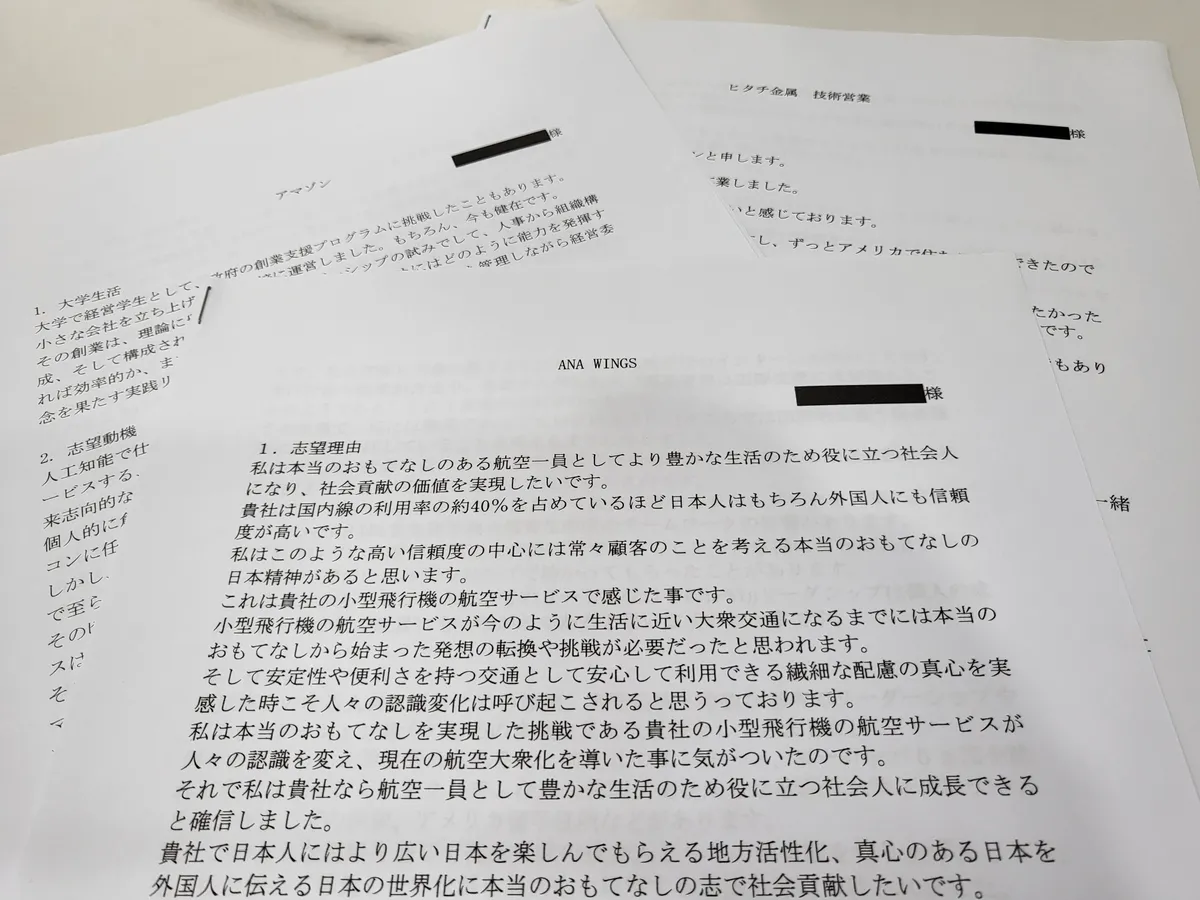 ヒタチ金属　技術営業
様
ンと申します。
業しました。
いと感じております。
し、ずっとアメリカで住
できたので
たかった
です。
もあり
一緒
アマゾン
様
1. 大学生活
大学で経営学生として、政府の創業支援プログラムに挑戦したこともあります。
小さな会社を立ち上げ
に運営しました。もちろん、今も健在です。
その創業は、理論に
シップの試みでして、人事から組織構
成、そして構成され
にはどのように能力を発揮す
れば効率的か、ま
管理しながら経営委
念を果たす実践リ
2. 志望動機
人工知能で仕
ービスする
来志向的な
個人的に
コンに任
しかし
で至ら
その
スは
そ
ANA WINGS
様
1．志望理由
私は本当のおもてなしのある航空一員としてより豊かな生活のため役に立つ社会人
になり、社会貢献の価値を実現したいです。
貴社は国内線の利用率の約40%を占めているほど日本人はもちろん外国人にも信頼
度が高いです。
私はこのような高い信頼度の中心には常々顧客のことを考える本当のおもてなしの
日本精神があると思います。
これは貴社の小型飛行機の航空サービスで感じた事です。
小型飛行機の航空サービスが今のように生活に近い大衆交通になるまでには本当の
おもてなしから始まった発想の転換や挑戦が必要だったと思われます。
そして安定性や便利さを持つ交通として安心して利用できる繊細な配慮の真心を実
感した時こそ人々の認識変化は呼び起こされると思うっております。
私は本当のおもてなしを実現した挑戦である貴社の小型飛行機の航空サービスが
人々の認識を変え、現在の航空大衆化を導いた事に気がついたのです。
それで私は貴社なら航空一員として豊かな生活のため役に立つ社会人に成長できる
と確信しました。
貴社で日本人にはより広い日本を楽しんでもらえる地方活性化、真心のある日本を
外国人に伝える日本の世界化に本当のおもてなしの志で社会貢献したいです。